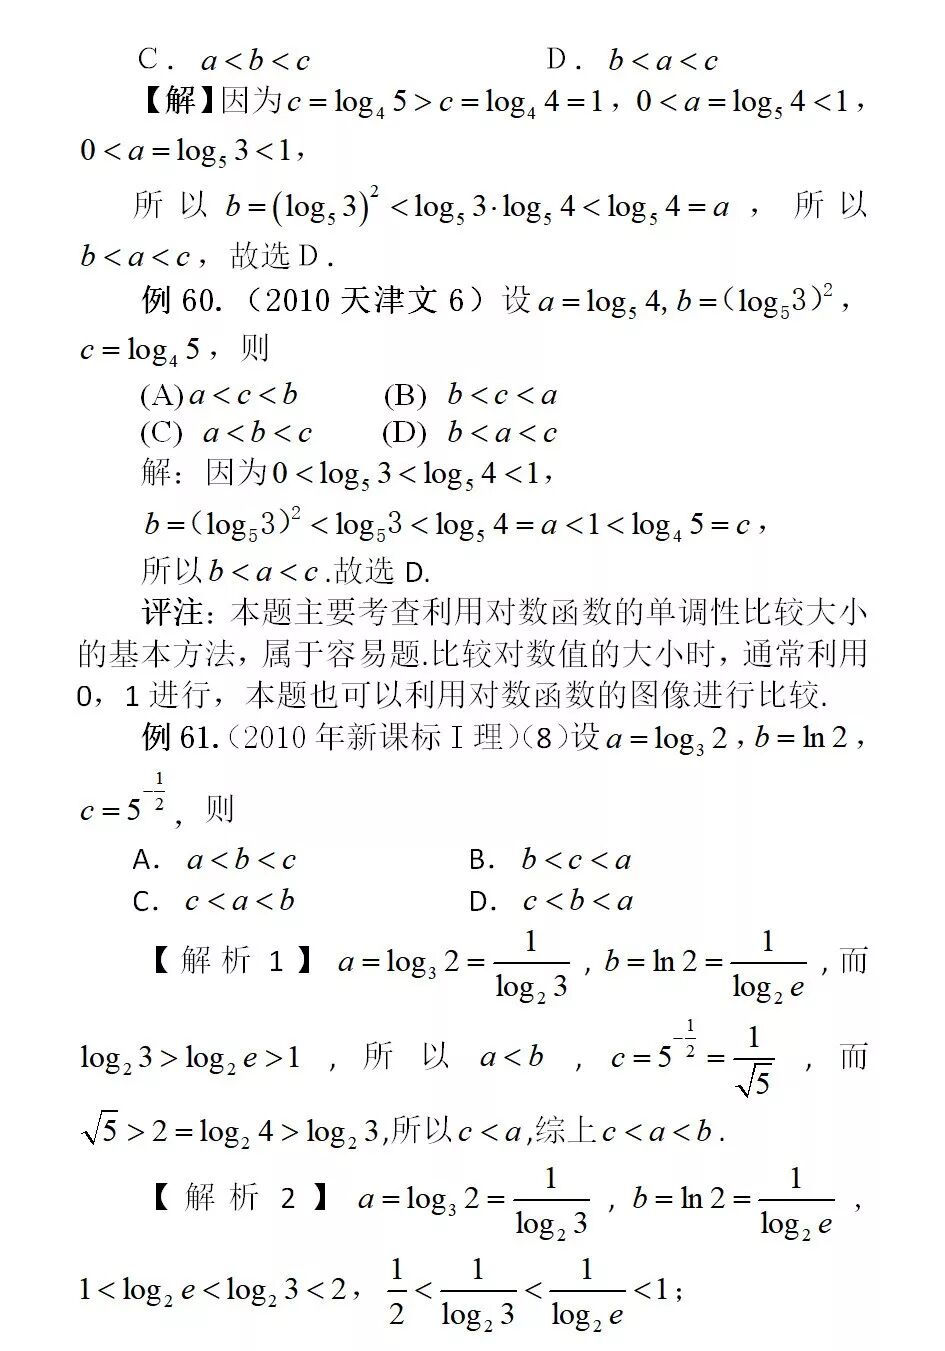 C. a<b<c D. b<a<c
【解】因为c=log₄5>c=log₄4=1，0<a=log₅4<1，
0<a=log₅3<1，
所以b=(log₅3)²<log₅3·log₅4<log₅4=a，所以
b<a<c，故选D.
例60.（2010天津文6）设a=log₅4,b=(log₅3)²，
c=log₄5，则
(A)a<c<b (B) b<c<a
(C) a<b<c (D) b<a<c
解：因为0<log₅3<log₅4<1，
b=(log₅3)²<log₅3<log₅4=a<1<log₄5=c，
所以b<a<c.故选D.
评注：本题主要考查利用对数函数的单调性比较大小
的基本方法，属于容易题.比较对数值的大小时，通常利用
0，1进行，本题也可以利用对数函数的图像进行比较.
例61.（2010年新课标Ⅰ理）（8）设a=log₃2，b=ln2，
c=5^(-1/2)，则
A. a<b<c B. b<c<a
C. c<a<b D. c<b<a
【解析1】a=log₃2=1/log₂3，b=ln2=1/log₂e，而
log₂3>log₂e>1，所以a<b，c=5^(-1/2)=1/√5，而
√5>2=log₂4>log₂3,所以c<a,综上c<a<b.
【解析2】a=log₃2=1/log₂3，b=ln2=1/log₂e，
1<log₂e<log₂3<2，1/2<1/log₂3<1/log₂e<1；